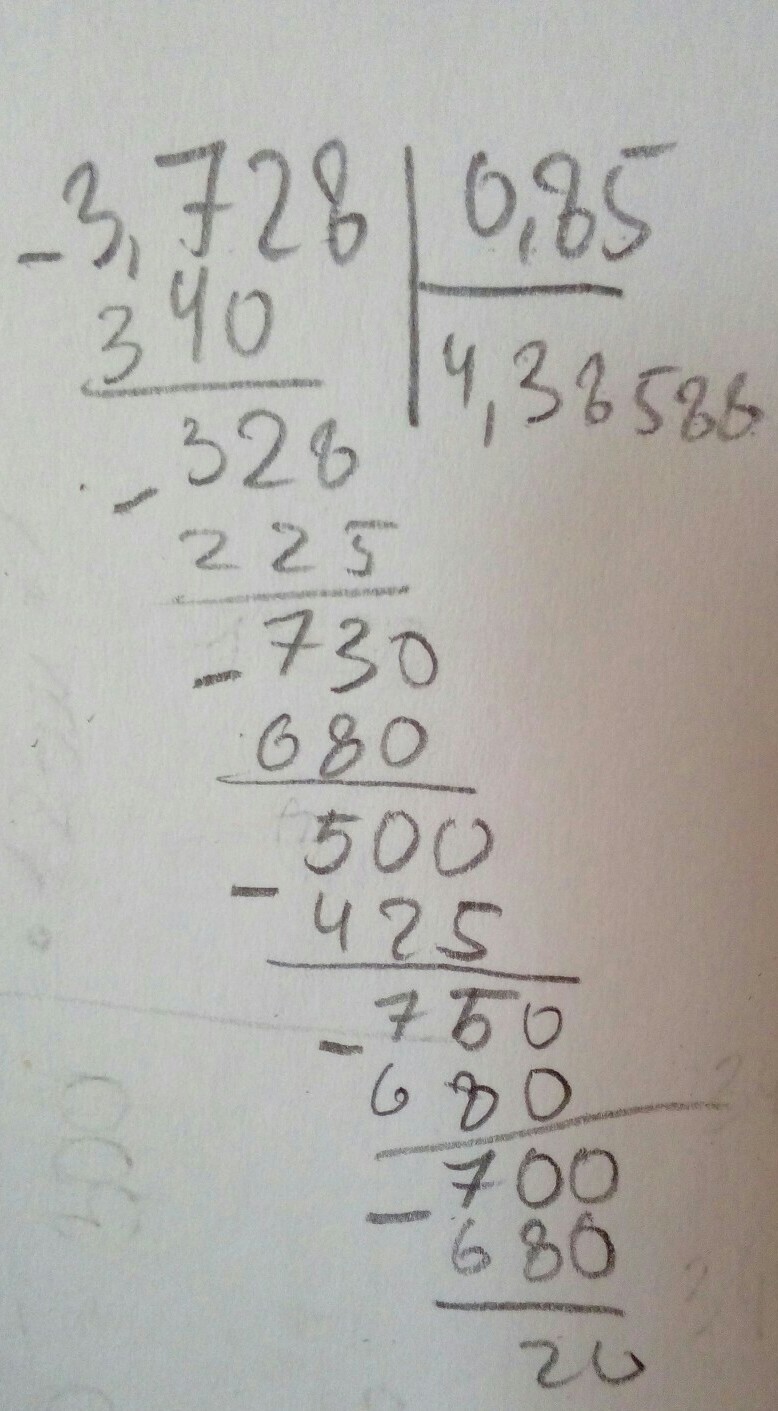 -3,728 | 0,85
340
4,38588
-328
225
-730
680
500
-425
-750
680
-700
680
20